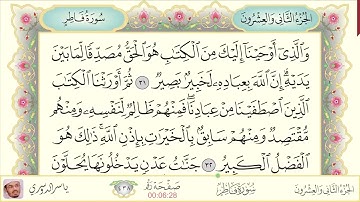 الجزء الثاني والعشرون
سورة فاطر
وَالَّذِي أَوْحَيْنَا إِلَيْكَ مِنَ الْكِتَابِ هُوَ الْحَقُّ مُصَدِّقًا لِمَا بَيْنَ
يَدَيْهِ إِنَّ اللَّهَ بِعِبَادِهِ لَخَبِيرٌ بَصِيرٌ ٣١ ثُمَّ أَوْرَثْنَا الْكِتَابَ
الَّذِينَ اصْطَفَيْنَا مِنْ عِبَادِنَا فَمِنْهُمْ ظَالِمٌ لِنَفْسِهِ وَمِنْهُمْ
مُقْتَصِدٌ وَمِنْهُمْ سَابِقٌ بِالْخَيْرَاتِ بِإِذْنِ اللَّهِ ذَلِكَ هُوَ
الْفَضْلُ الْكَبِيرُ ٣٢ جَنَّاتُ عَدْنٍ يَدْخُلُونَهَا يُحَلَّوْنَ
الجزء الثاني والعشرون
سورة فاطر
صفحة رقم
٤٣٨
00:06:28
ياسر الدوسري